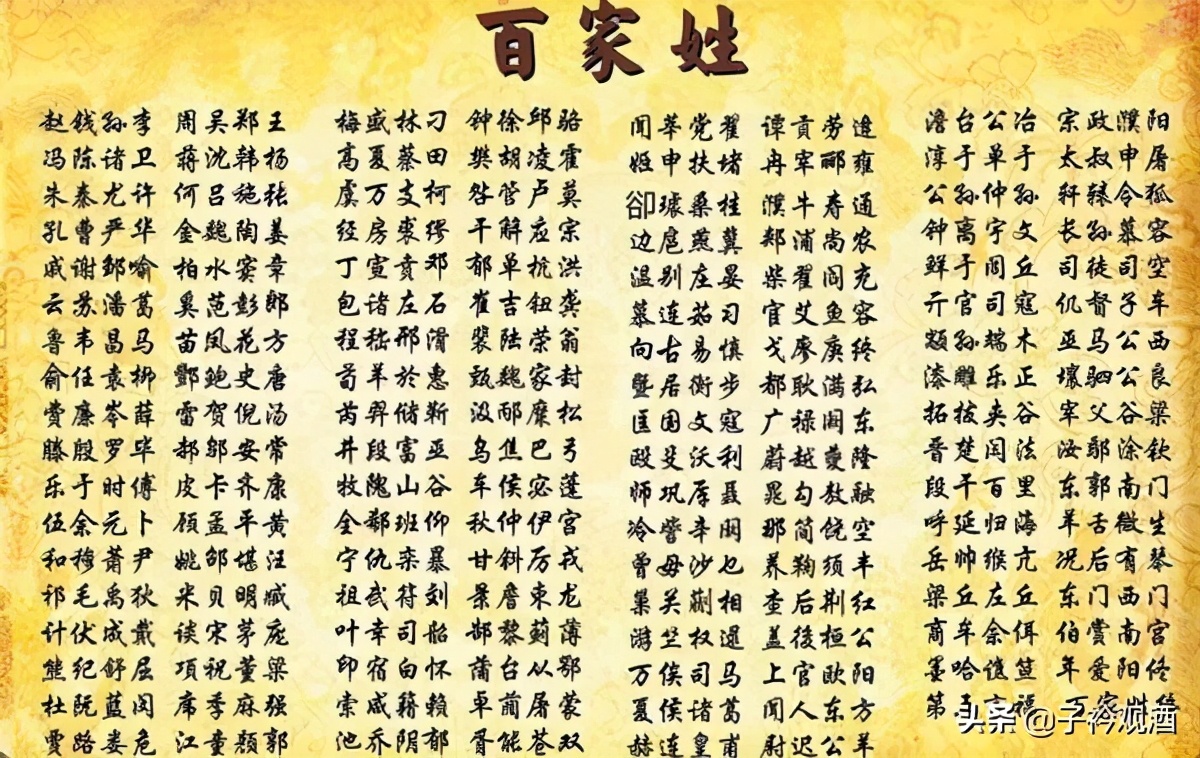 百家姓
赵钱孙李 周吴郑王
冯陈诸卫 蒋沈韩杨
朱秦尤许 何吕施张
孔曹严华 金魏陶姜
戚谢邹喻 柏水窦章
云苏潘葛 奚范彭郎
鲁韦昌马 苗凤花方
俞任袁柳 酆鲍史唐
费廉岑薛 雷贺倪汤
滕殷罗毕 郝邬安常
乐于时傅 皮卡齐康
伍余元卜 顾孟平黄
和穆萧尹 姚邵堪汪
祁毛禹狄 米贝明臧
计伏成戴 谈宋茅庞
熊纪舒屈 項祝董梁
杜阮蓝闵 席季麻强
贾路娄危 江童颜郭
梅盛林刁 钟徐邱骆
高夏蔡田 樊胡凌霍
虞万支柯 昝管卢莫
经房裘缪 干解应宗
丁宣贲邓 郁单杭洪
包诸左石 崔吉钮龚
程嵇邢滑 裴陆荣翁
荀羊於惠 甄魏家封
芮羿储靳 汲邴糜松
井段富巫 乌焦巴弓
牧隗山谷 车侯宓蓬
全郗班仰 秋仲伊宫
宁仇栾暴 甘斜厉戎
祖武符刘 景詹束龙
叶幸司韶 郜黎蓟薄
印宿白怀 蒲台从鄂
索咸籍赖 卓蔺屠蒙
池乔阴郁 胥能苍双
闻莘党翟 谭贡劳逄
姬申扶堵 冉宰郦雍
卻璩桑桂 濮牛寿通
边扈燕冀 郏浦尚农
温别庄晏 柴瞿阎充
慕连茹习 宦艾鱼容
向古易慎 戈廖庚终
暨居衡步 都耿满弘
匡国文寇 广禄阙东
殴殳沃利 蔚越夔隆
师巩厍聂 晁勾敖融
冷訾辛阚 那简饶空
曾毋沙乜 养鞠须丰
巢关蒯相 查后荆红
游竺权逯 盖後桓公
万俟司马 上官欧阳
夏侯诸葛 闻人东方
赫连皇甫 尉迟公羊
澹台公冶 宗政濮阳
淳于单于 太叔申屠
公孙仲孙 轩辕令狐
钟离宇文 长孙慕容
鲜于闾丘 司徒司空
亓官司寇 仉督子车
颛孙端木 巫马公西
漆雕乐正 壤驷公良
拓拔夹谷 宰父谷梁
晋楚闫法 汝鄢涂钦
段干百里 东郭南门
呼延归海 羊舌微生
岳帅缑亢 况后有琴
梁丘左丘 东门西门
商牟佘佴 伯赏南宫
墨哈谯笪 年爱阳佟
第五言福 百家姓终
头条 @子衿观酒